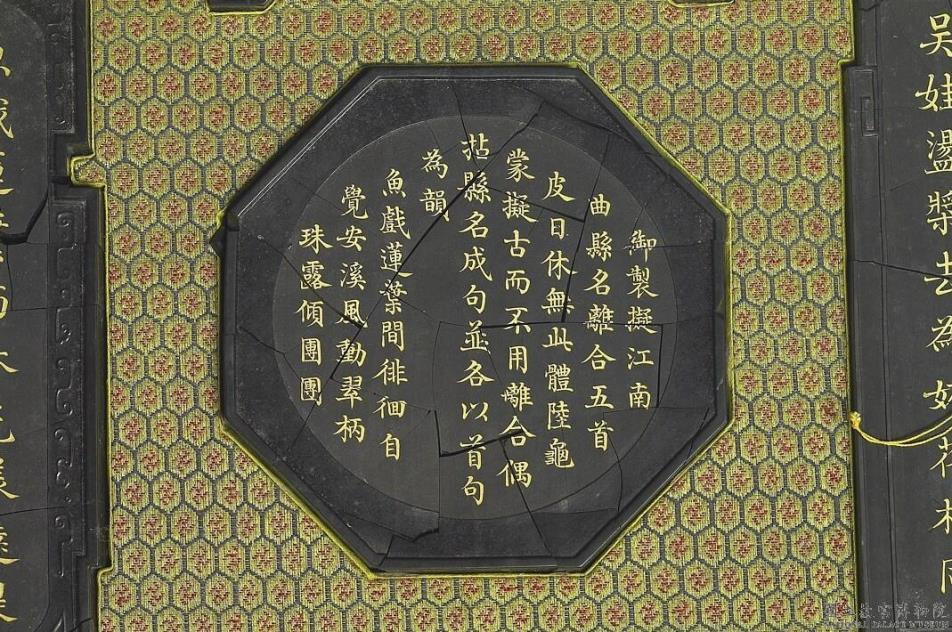 吳娃盪槳去為如花
御製擬江南
曲縣名離合五首
皮日休無此體陸龜
蒙擬古而不用離合偶
拈縣名成句並各以首句
為韻
魚戲蓮葉間徘徊自
覺安溪風動翠柄
珠露傾團團
國立故宮博物院
NATIONAL PALACE MUSEUM